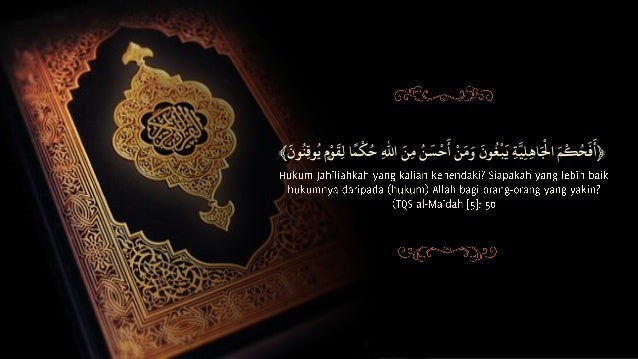 ﴿أَفَحُكْمَ الْجَاهِلِيَّةِ يَبْغُونَ وَمَنْ أَحْسَنُ مِنَ اللهِ حُكْمًا لِقَوْمٍ يُوقِنُونَ﴾
Hukum Jahiliahkah yang kalian kehendaki? Siapakah yang lebih baik
hukumnya daripada (hukum) Allah bagi orang-orang yang yakin?
(TQS al-Ma'dah [5]: 50